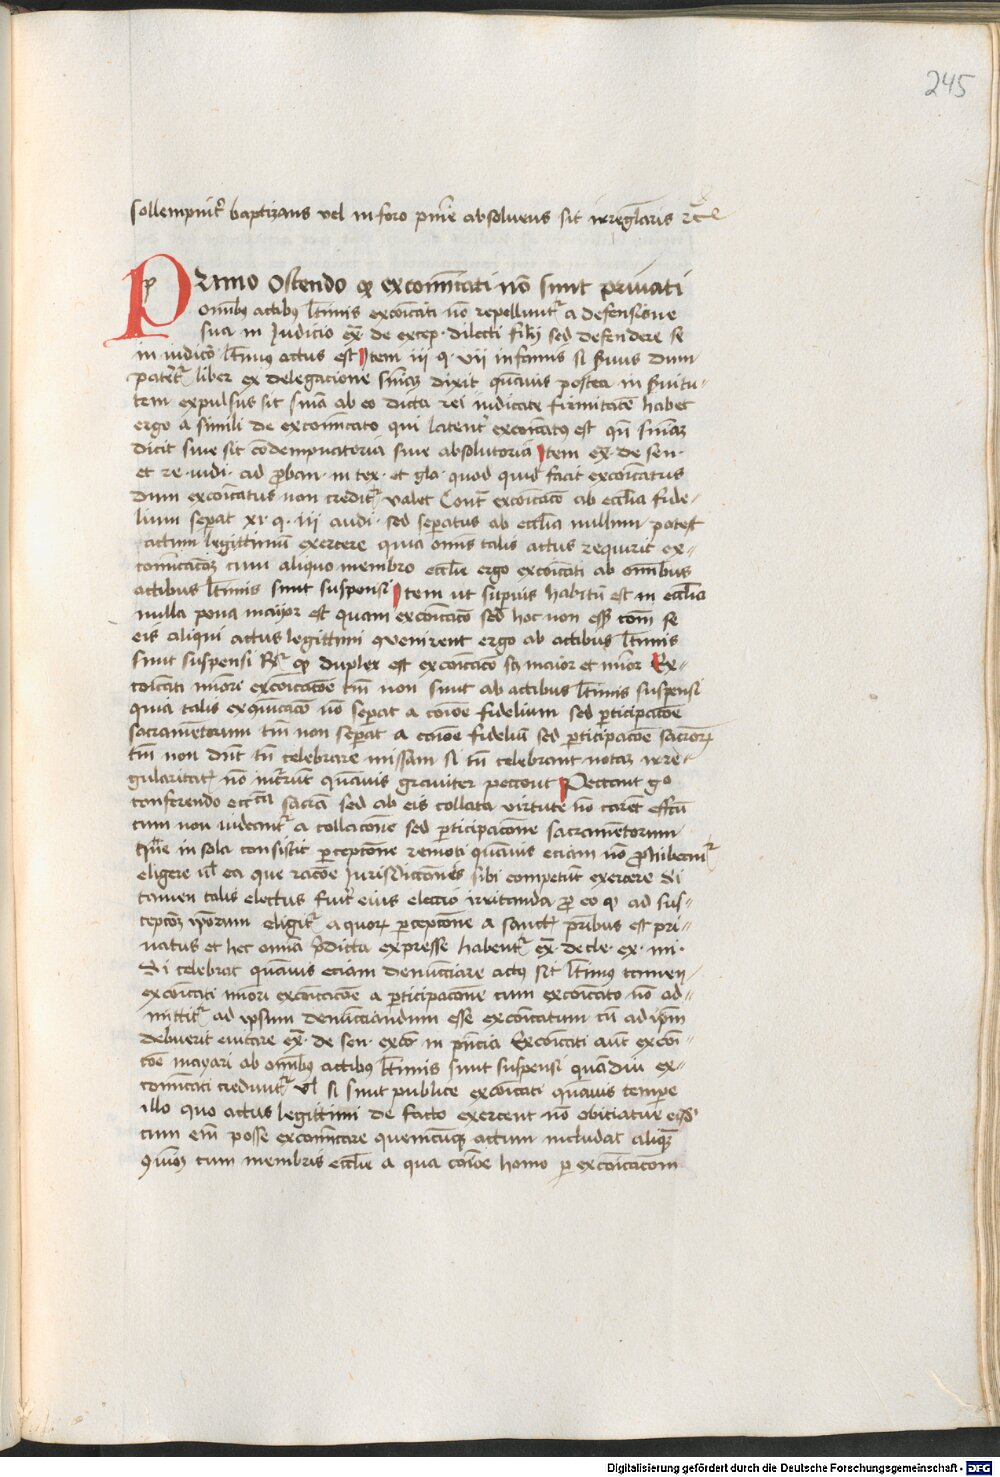 245
sollempnit᷑ baptizans vel in foro pn̄ie absolvens sit irregl̄aris ꝛc̄
Primo ostendo ꝙ excom̄icati nō sunt privati
om̄ibꝰ actibꝰ l̄timis excōicati nō repellunt᷑ a defensione
sua in Judicio ex̄ de excep · dilecti filij sed defendere se
in iudicō l̄timꝰ actus est Item iii q · vii infamis si s̄vus dum
putet᷑ liber ex delegacione sn̄iaꝫ dixit quāvis postea in s̄vitu-
tem expulsus sit sn̄ia ab eo dicta rei iudicate firmitatē habet
ergo a simili de excom̄icato qui latent᷑ excōicatꝰ est qn̄ sn̄iaꝫ
dicit sive sit cōdempnatoria sive absolutoria Item ex̄ · de sen ·
et re · iudi · ad ꝓban · in tex · et glo · quod quidꝫ facit excōicatus
dum excōicatus non credit᷑ valet Cont᷑ excōicacō ab eccl̄ia fide-
lium sep̄at xi · q · iii audi · sed sep̄atus ab eccl̄ia nullum potest
actum legittimū exercere quia om̄is talis actus requirit ex-
com̄icacōꝫ cum aliquo membro eccl̄ie ergo excōicati ab om̄ibus
actibus l̄timis sunt suspensi Item ut sup̄ius habitū est in eccl̄ia
nulla pena mayor est quam excōicacō sed hoc non ess̄ com̄ se
eis aliqui actus legittimi ꝯvenirent ergo ab actibus l̄timis
sunt suspensi Rꝰ ꝙ duplex est excōicacō scꝫ maior et mīor Ex-
coīcati mīori excōicacōe tm̄ non sunt ab actibus l̄timis suspensi
quia talis excōicacō nō sep̄at a cōiōe fidelium sed ꝑticipacōe
sacramētorum tm̄ non sep̄at a cōiōe fideliū sed ꝑticipacōe sacrōꝝ
tm̄ non dn̄t tn̄ celebrare missam si tn̄ celebrant notaꝫ irre-
gularitat᷑ nō incur̄nt quāvis graviter peccent Peccant gº
conferendo eccᵗᶜᵃ sacrā sed ab eis collata virtute nō caret eff̄cū
cum non videant᷑ a collacōne sed ꝑticipacōne sacramētorum
que in sola consistit ꝑcepcōne remoti quāvis eciam nō ꝓhibeant᷑
eligere vl̄ ea que racōe Jurisdiccōnis sibi competūt exercere Si
tamen talis electus fuit᷑ eius eleccio irritanda ꝓ eo ꝙ ad sus-
cepcōꝫ ip̄orum eligit᷑ a quoꝝ ꝑcepcōne a sanct᷑ pr̄ibus est pri-
vatus et hec om̄ia p̄dicta expresse habent᷑ ex̄ · de cle · ex · mi ·
Si celebrat quāvis eciam denūciare actꝰ sit l̄timꝰ tamen
excōicati mīori excōicacōe a ꝑticipacōne cum excōicato nō ad-
mittit᷑ ad ipsum denūciandum esse excōicatum cū ad ip̄m
debuerit evitare ex̄ · de sen · excō · in pn̄cia Excōicati aūt excōi-
cōe mayori ab om̄ibꝰ actibꝰ l̄timis sunt suspensi quādiu ex-
com̄icati credunt᷑ vl̄ si sunt publice excōicati quāvis tempore
illo quo actus legittimi de facto exercent nō obiciatur eis
cum em̄ posse excom̄icare quemcūqꝫ actum includat aliquā
ꝯvionꝫ cum membris eccl̄ie a qua cōiōe homo p excōicacom̄
Digitalisierung gefördert durch die Deutsche Forschungsgemeinschaft - DFG